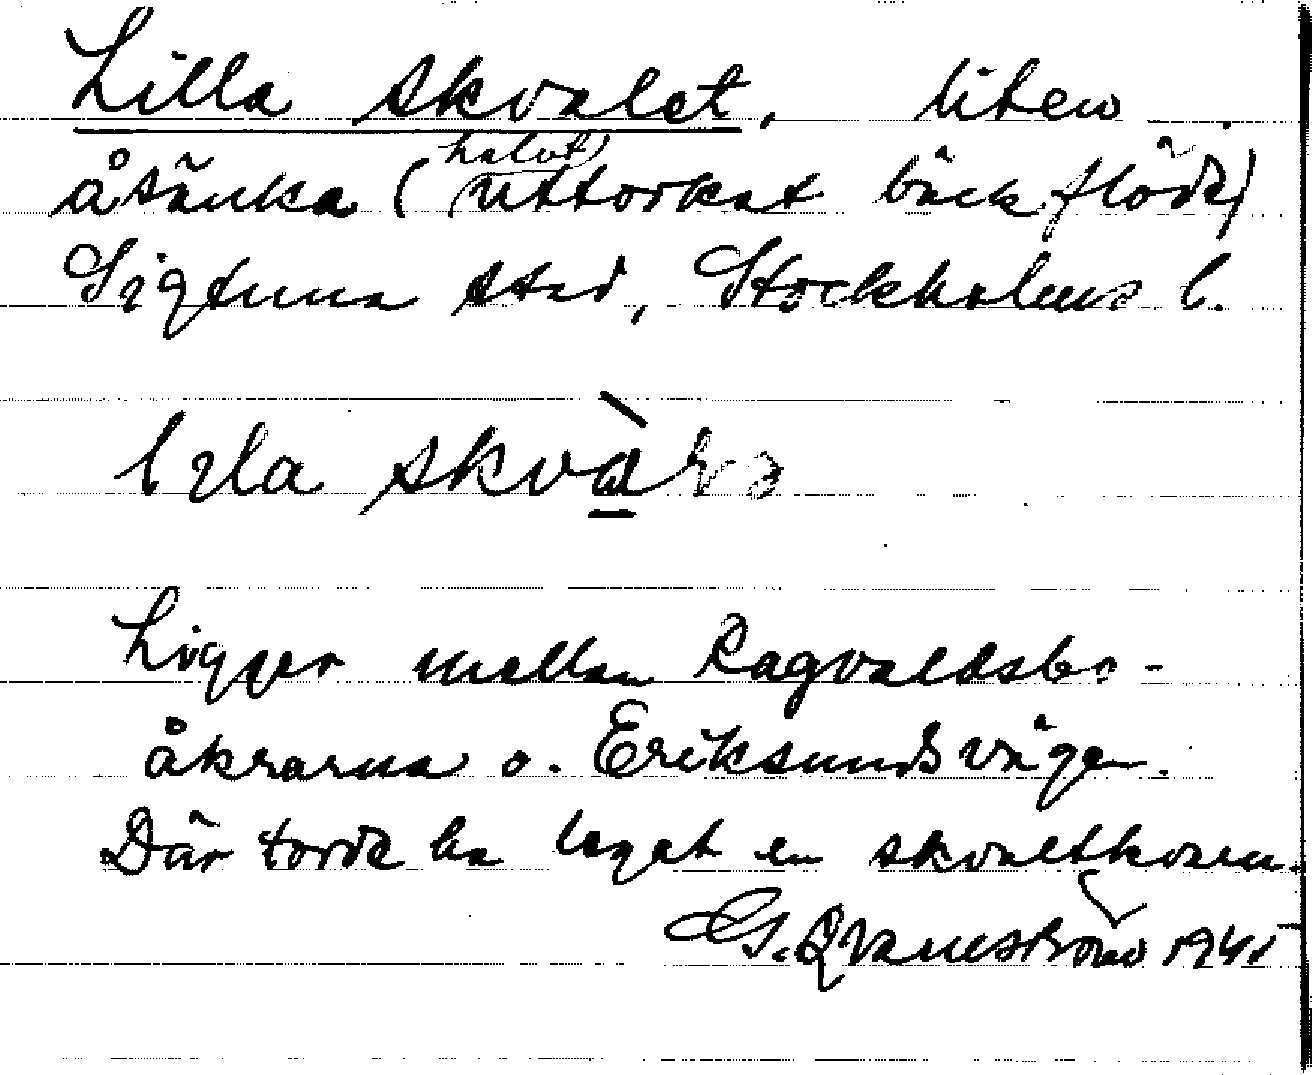 Lilla skvalet, liten
åsänka (halvt uttorkat bäckflöde)
Sigtuna stad, Stockholms l.
lɪla skvàlə
Ligger mellan Ragvaldsbo-
åkrarna o. Eriksundsvägen.
Där torde ha legat en skvaltkvarn.
G. Qvarnström 1945